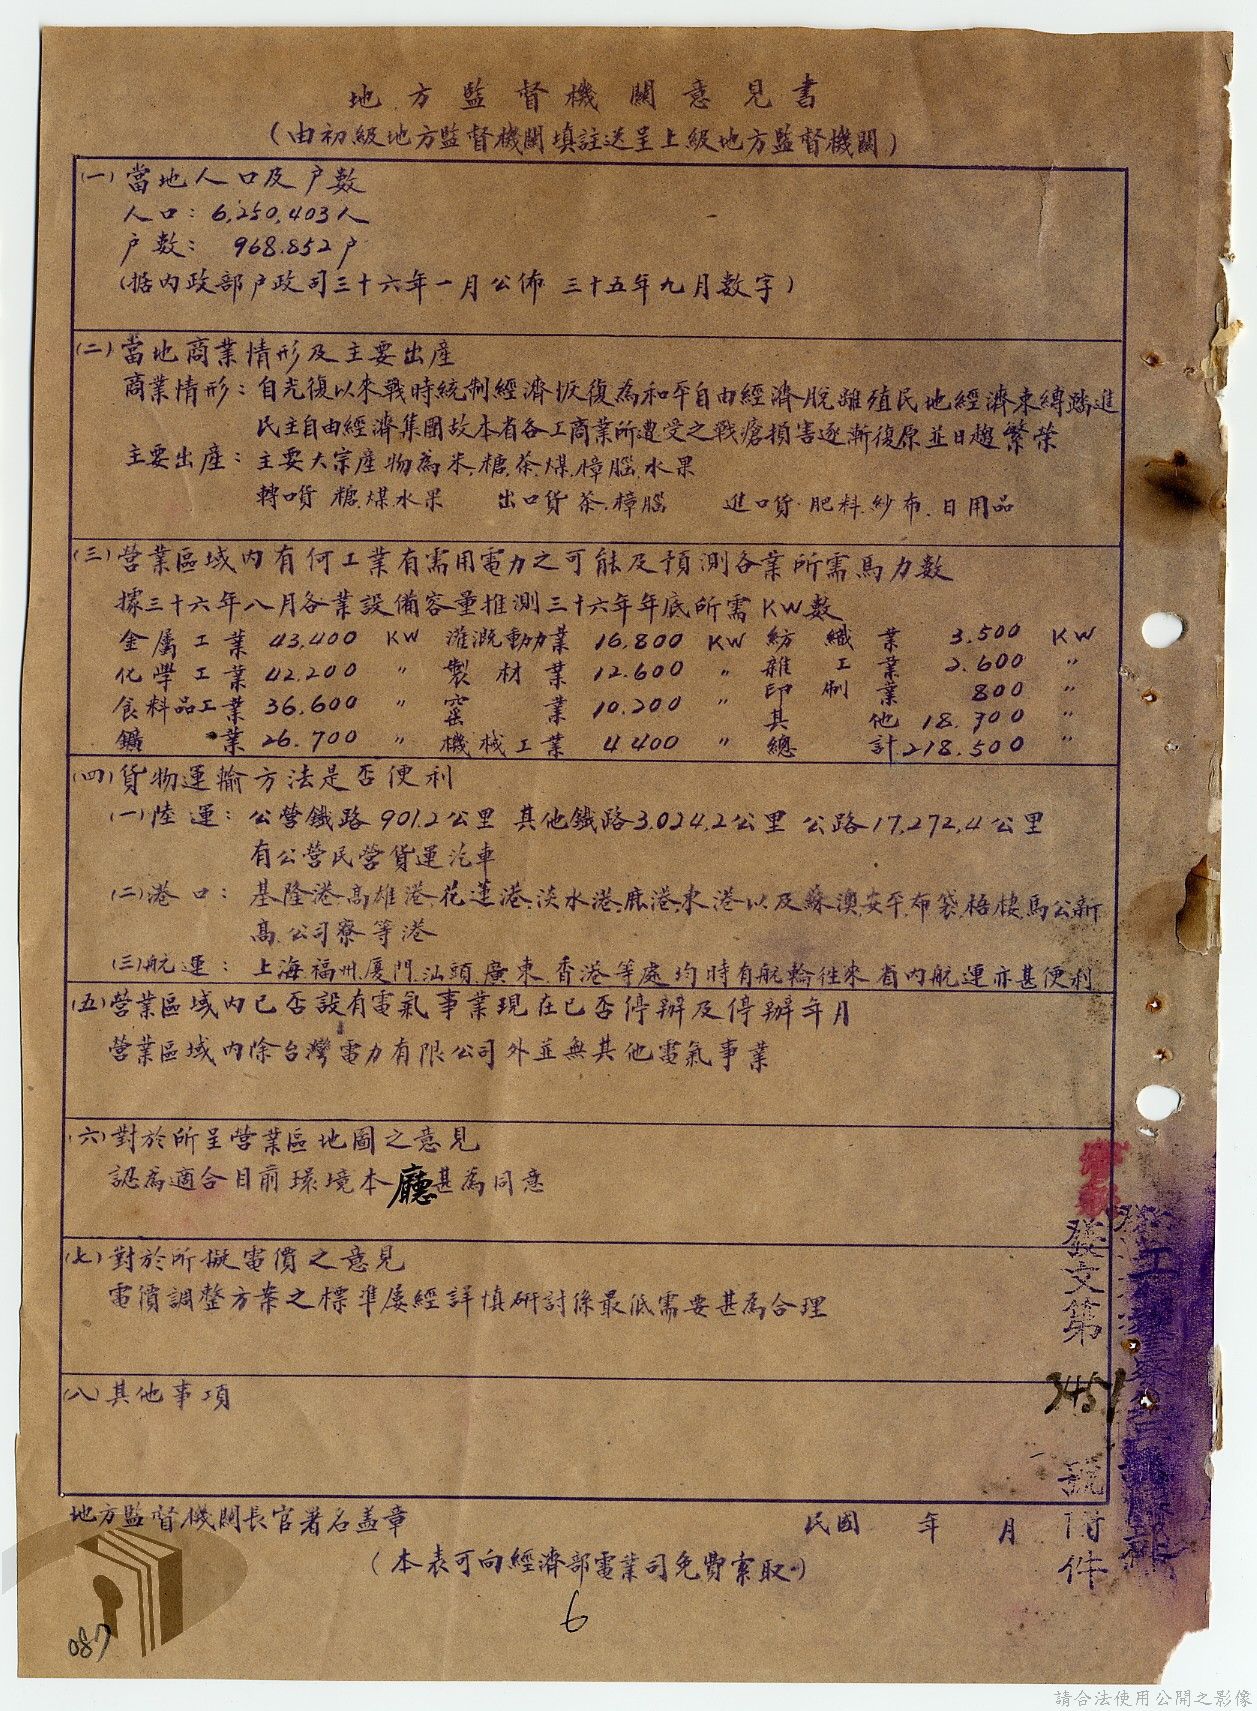 地方監督機關意見書
(由初級地方監督機關填註送呈上級地方監督機關)
(一)當地人口及戶數
人口：6,250,403人
戶數： 968.852戶
(据內政部戶政司三十六年一月公佈 三十五年九月數字)
(二)當地商業情形及主要出産
商業情形：自光復以來戰時統制經濟恢復為和平自由經濟脫離殖民地經濟束縛踏進
民主自由經濟集團故本省各工商業所遭受之戰瘡損害逐漸復原並日趨繁榮
主要出産：主要大宗産物為米.糖.茶.煤.樟腦.水果
轉口貨 糖.煤.水果 出口貨 茶.樟腦 進口貨.肥料.紗布.日用品
(三)营業區域內有何工業有需用電力之可能及預測各業所需馬力數
據三十六年八月各業設備容量推測三十六年年底所需KW數
金属工業 43,400 KW 灌溉動力業 16,800 KW 紡織業 3.500 KW
化學工業 42.200 〃 製材業 12.600 〃 雜工業 2.600 〃
食料品工業 36.600 〃 窑業 10.200 〃 印刷業 800 〃
鑛業 26.700 〃 機械工業 4400 〃 其他 18.700 〃
總計 218.500 〃
(四)貨物運輸方法是否便利
(一)陸運：公營鐵路901.2公里 其他鐵路3,024.2公里 公路17,272.4公里
有公营民营貨運汽車
(二)港口：基隆港.高雄港.花蓮港.淡水港.鹿港.東港以及蘇澳.安平.布袋.梧棲.馬公.新
高.公司寮等港
(三)航運：上海.福州.厦門.汕頭.廣東.香港等處均時有航輪往來省內航運亦甚便利
(五)营業區域內已否設有電氣事業現在已否停辦及停辦年月
营業區域內除台灣電力有限公司外並無其他電氣事業
(六)對於所呈营業區地圖之意見
認為適合目前環境本廳甚為同意
(七)對於所擬電價之意見
電價調整方案之標準屡經詳慎研討係最低需要甚為合理
(八)其他事項
地方監督機關長官署名盖章
民國 年 月
(本表可向經濟部電業司免費索取)
發文第
3451
號附件
6
087
請合法使用公開之影像